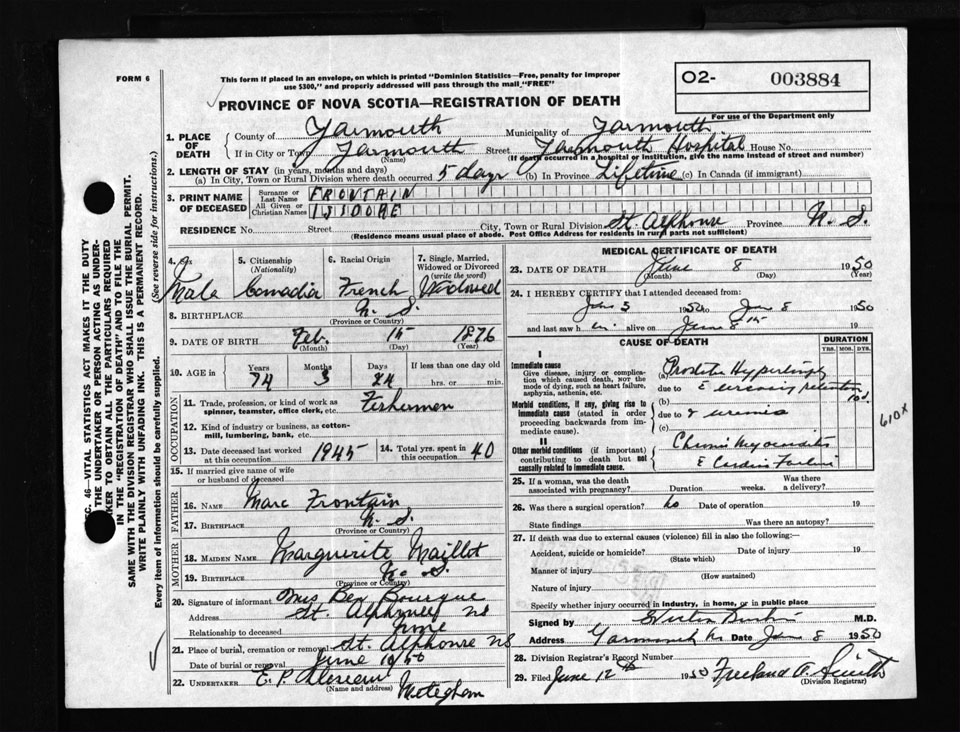 FORM 6
This form if placed in an envelope, on which is printed "Dominion Statistics—Free, penalty for improper
use $300," and properly addressed will pass through the mail "FREE"
O2- 003884
For use of the Department only
PROVINCE OF NOVA SCOTIA—REGISTRATION OF DEATH
1. PLACE OF DEATH County of Yarmouth Municipality of Yarmouth
If in City or Town Yarmouth (Name) Street Yarmouth Hospital House No.
(If death occurred in a hospital or institution, give the name instead of street and number)
2. LENGTH OF STAY (in years, months and days)
(a) In City, Town or Rural Division where death occurred 5 days (b) In Province Lifetime (c) In Canada (if immigrant)
3. PRINT NAME OF DECEASED Surname or Last Name FRONTAIN
All Given or Christian Names ISIDORE
RESIDENCE No. Street City, Town or Rural Division St. Alphonse Province N. S.
(Residence means usual place of abode. Post Office Address for residents in rural parts not sufficient)
4. Sex Male
5. Citizenship (Nationality) Canadia
6. Racial Origin French
7. Single, Married, Widowed or Divorced (write the word) Widowed
8. BIRTHPLACE N. S.
(Province or Country)
9. DATE OF BIRTH Feb. (Month) 15 (Day) 1876 (Year)
10. AGE in Years 74 Months 3 Days 24 If less than one day old hrs. or min.
OCCUPATION
11. Trade, profession, or kind of work as spinner, teamster, office clerk, etc. Fishermen
12. Kind of industry or business, as cotton-mill, lumbering, bank, etc.
13. Date deceased last worked at this occupation 1945 14. Total yrs. spent in this occupation 40
15. If married give name of wife or husband of deceased
FATHER
16. NAME Marc Frontain
17. BIRTHPLACE N. S.
(Province or Country)
MOTHER
18. MAIDEN NAME Marguerite Maillet
19. BIRTHPLACE N. S.
(Province or Country)
20. Signature of informant Mrs Ben Bourque
Address St. Alphonse NS
Relationship to deceased
21. Place of burial, cremation or removal St. Alphonse NS
Date of burial or removal June 10/50
22. UNDERTAKER E. P.
(Name and address) Meteghan
MEDICAL CERTIFICATE OF DEATH
23. DATE OF DEATH June (Month) 8 (Day) 1950 (Year)
24. I HEREBY CERTIFY that I attended deceased from
3 1950 to June 8 1950
and last saw h im alive on June 8th 19
CAUSE OF DEATH
DURATION
YRS. MOS. DYS.
I
Immediate cause
Give disease, injury or complication which caused death, not the mode of dying, such as heart failure, asphyxia, asthenia, etc.
(a) Prostate
due to urinary retention
10d.
Morbid conditions, if any, giving rise to immediate cause (stated in order proceeding backwards from immediate cause).
(b)
due to uremia
(c)
610x
II
Other morbid conditions (if important) contributing to death but not causally related to immediate cause.
Chronic Myocarditis
Cardiac Failure
25. If a woman, was the death associated with pregnancy? Duration weeks. Was there a delivery?
26. Was there a surgical operation? No Date of operation 19
State findings Was there an autopsy?
27. If death was due to external causes (violence) fill in also the following:
Accident, suicide or homicide? (State which) Date of injury 19
Manner of injury (How sustained)
Nature of injury
Specify whether injury occurred in industry, in home, or in public place
Signed by M.D.
Address Yarmouth NS Date June 8 1950
28. Division Registrar's Record Number
29. Filed June 12th 1950 Smith
(Division Registrar)
SEC. 46—VITAL STATISTICS ACT MAKES IT THE DUTY
OF THE UNDERTAKER OR PERSON ACTING AS UNDER-
TAKER TO OBTAIN ALL THE PARTICULARS REQUIRED
IN THE "REGISTRATION OF DEATH" AND TO FILE THE
SAME WITH THE DIVISION REGISTRAR WHO SHALL ISSUE THE BURIAL PERMIT.
WRITE PLAINLY WITH UNFADING INK. THIS IS A PERMANENT RECORD.
Every item of information should be carefully supplied. (See reverse side for instructions.)